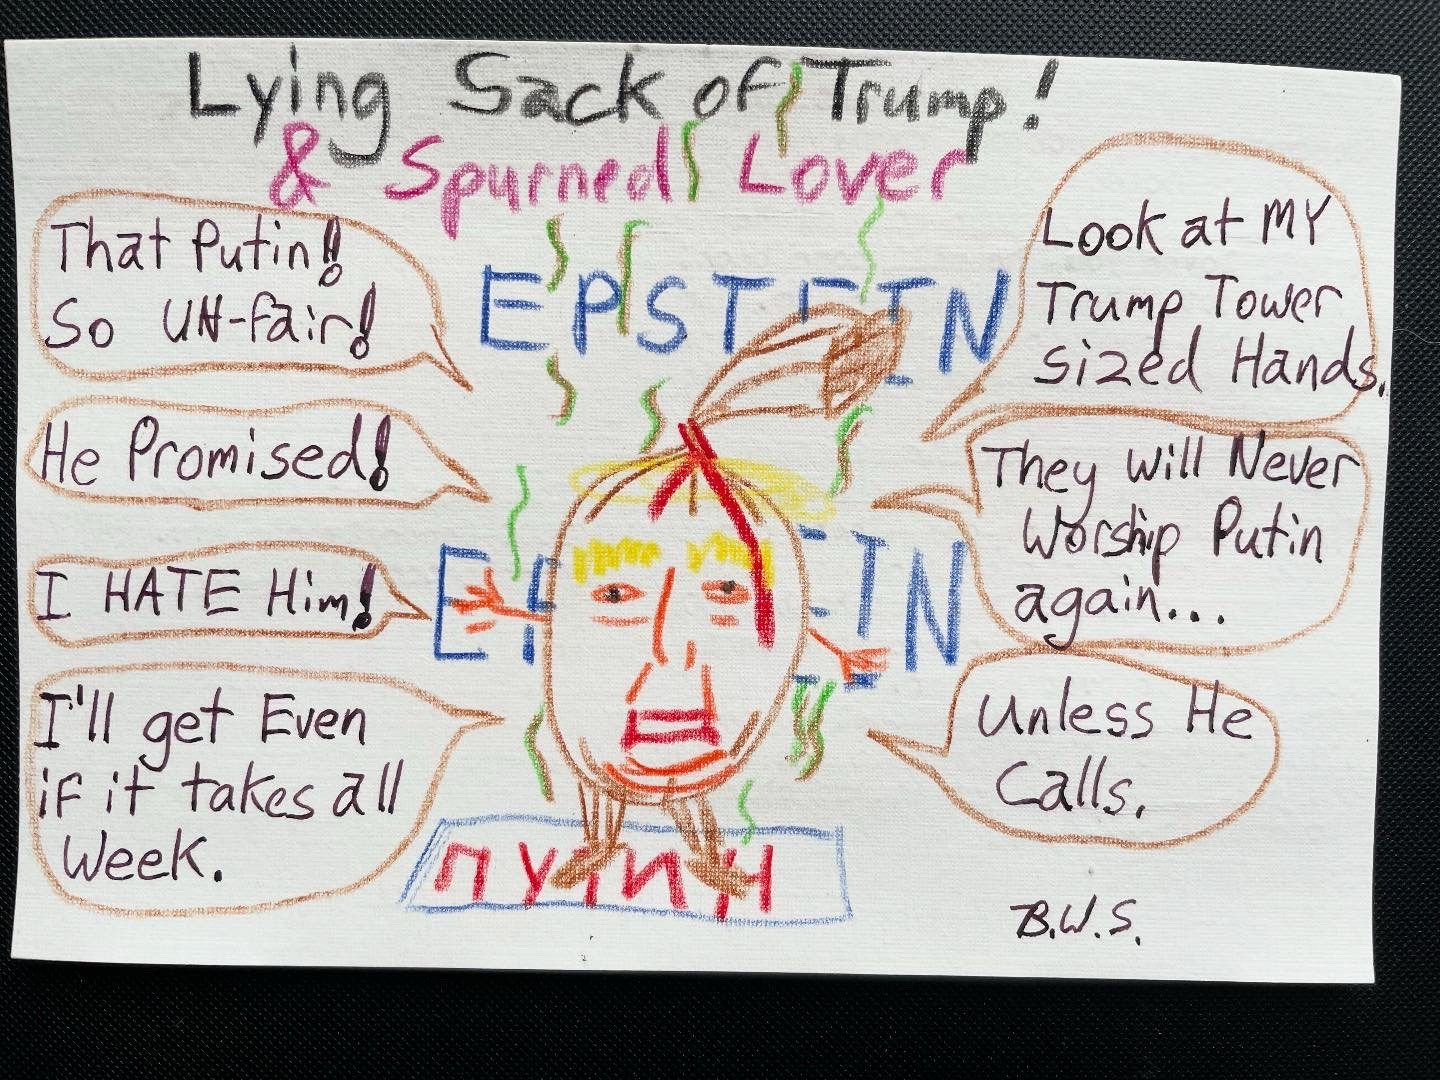 Lying Sack of Trump!
& Spurned Lover
That Putin!
So UN-fair!
He Promised!
I HATE Him!
I'll get Even
if it takes all
Week.
EPSTEIN
EP EIN
ПУТИН
Look at MY
Trump Tower
sized Hands.
They will Never
Worship Putin
again...
Unless He
Calls.
B.W.S.